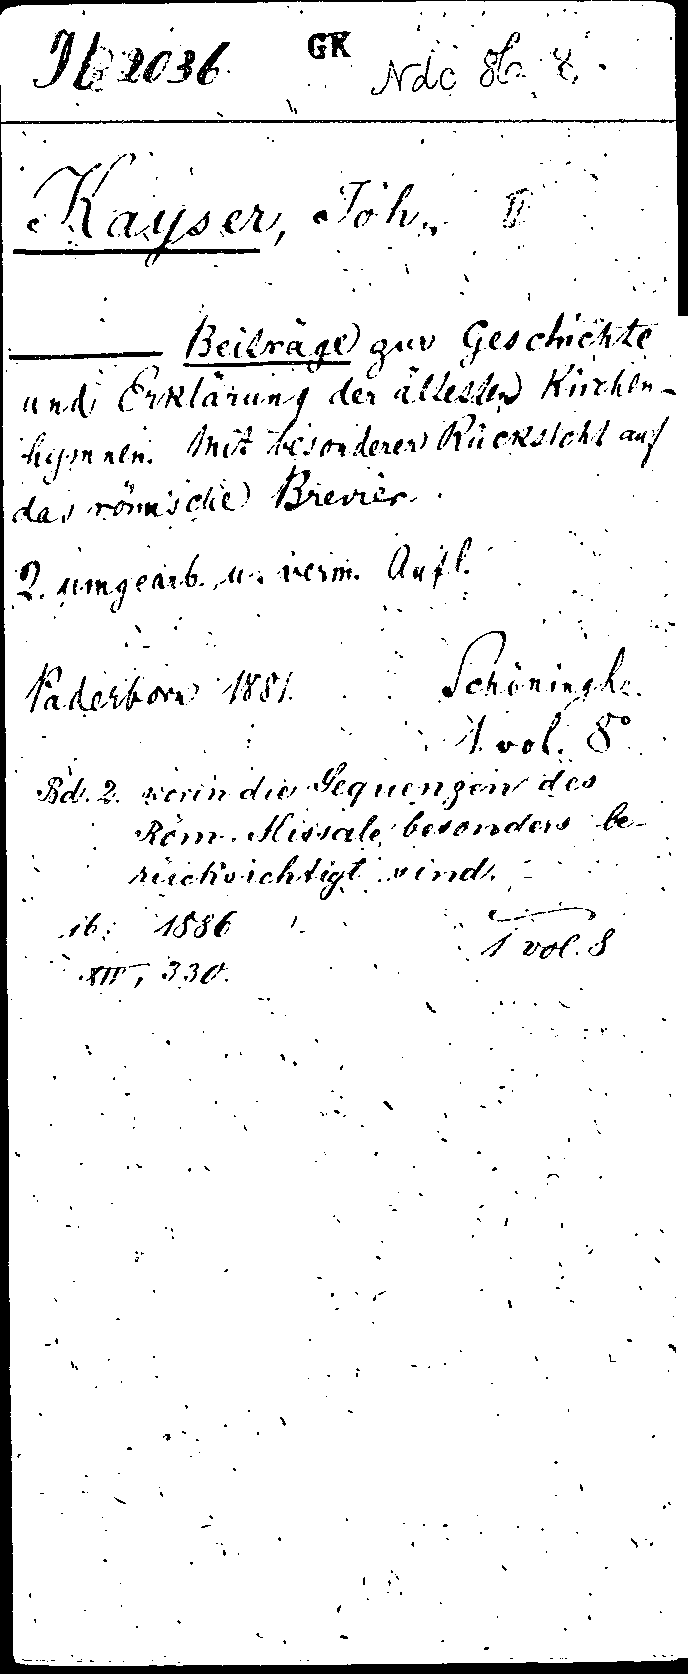 2036 GK Ndc
Kayser, Joh. II
Beiträge zur Geschichte
und Erklärung der ältesten Kirchen-
hymnen. Mit besonderer Rücksicht auf
das römische Brevier.
2. umgearb. u. verm. Aufl.
Paderborn 1881. Schöningh.
1 vol. 8°
Bd. 2. worin die Sequenzen des
Röm. Missale besonders be-
rücksichtigt sind.
ib. 1886 1 vol. 8
330.